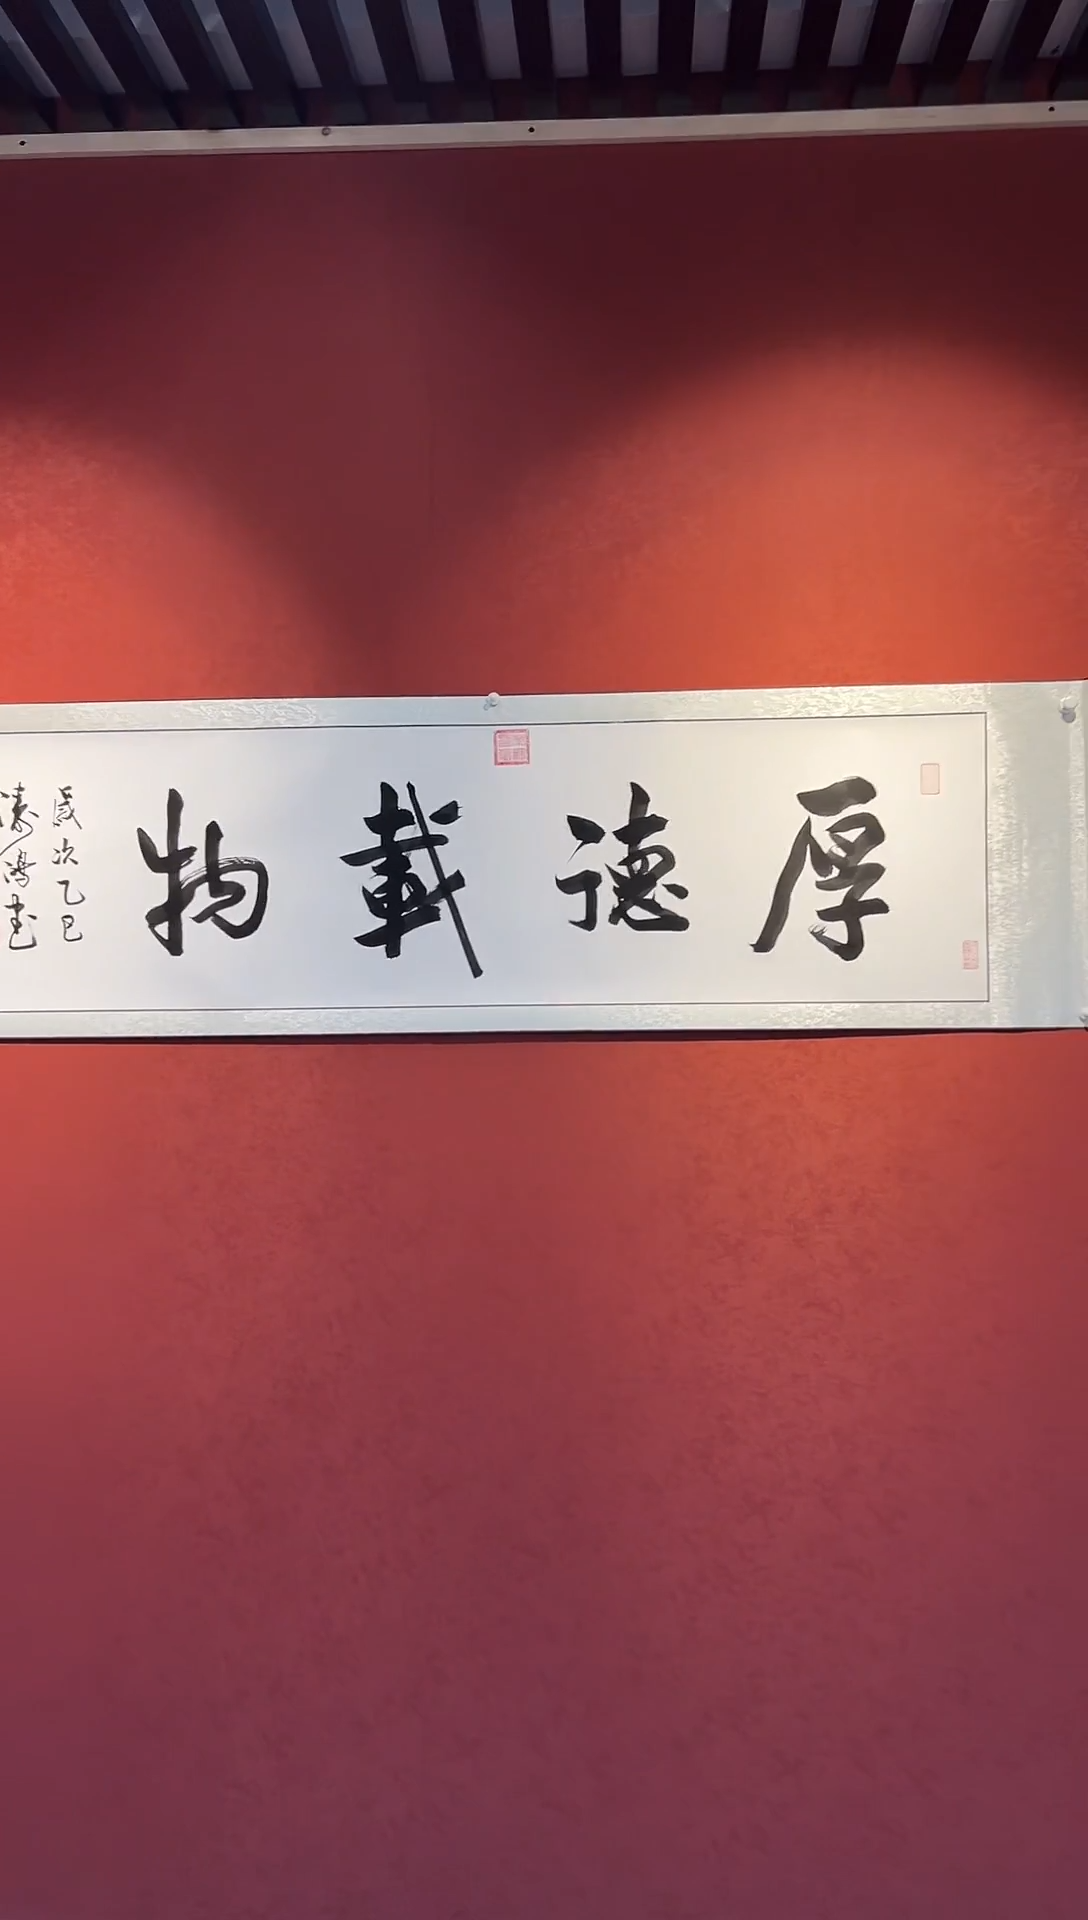 厚德載物
歲次乙巳
鴻書